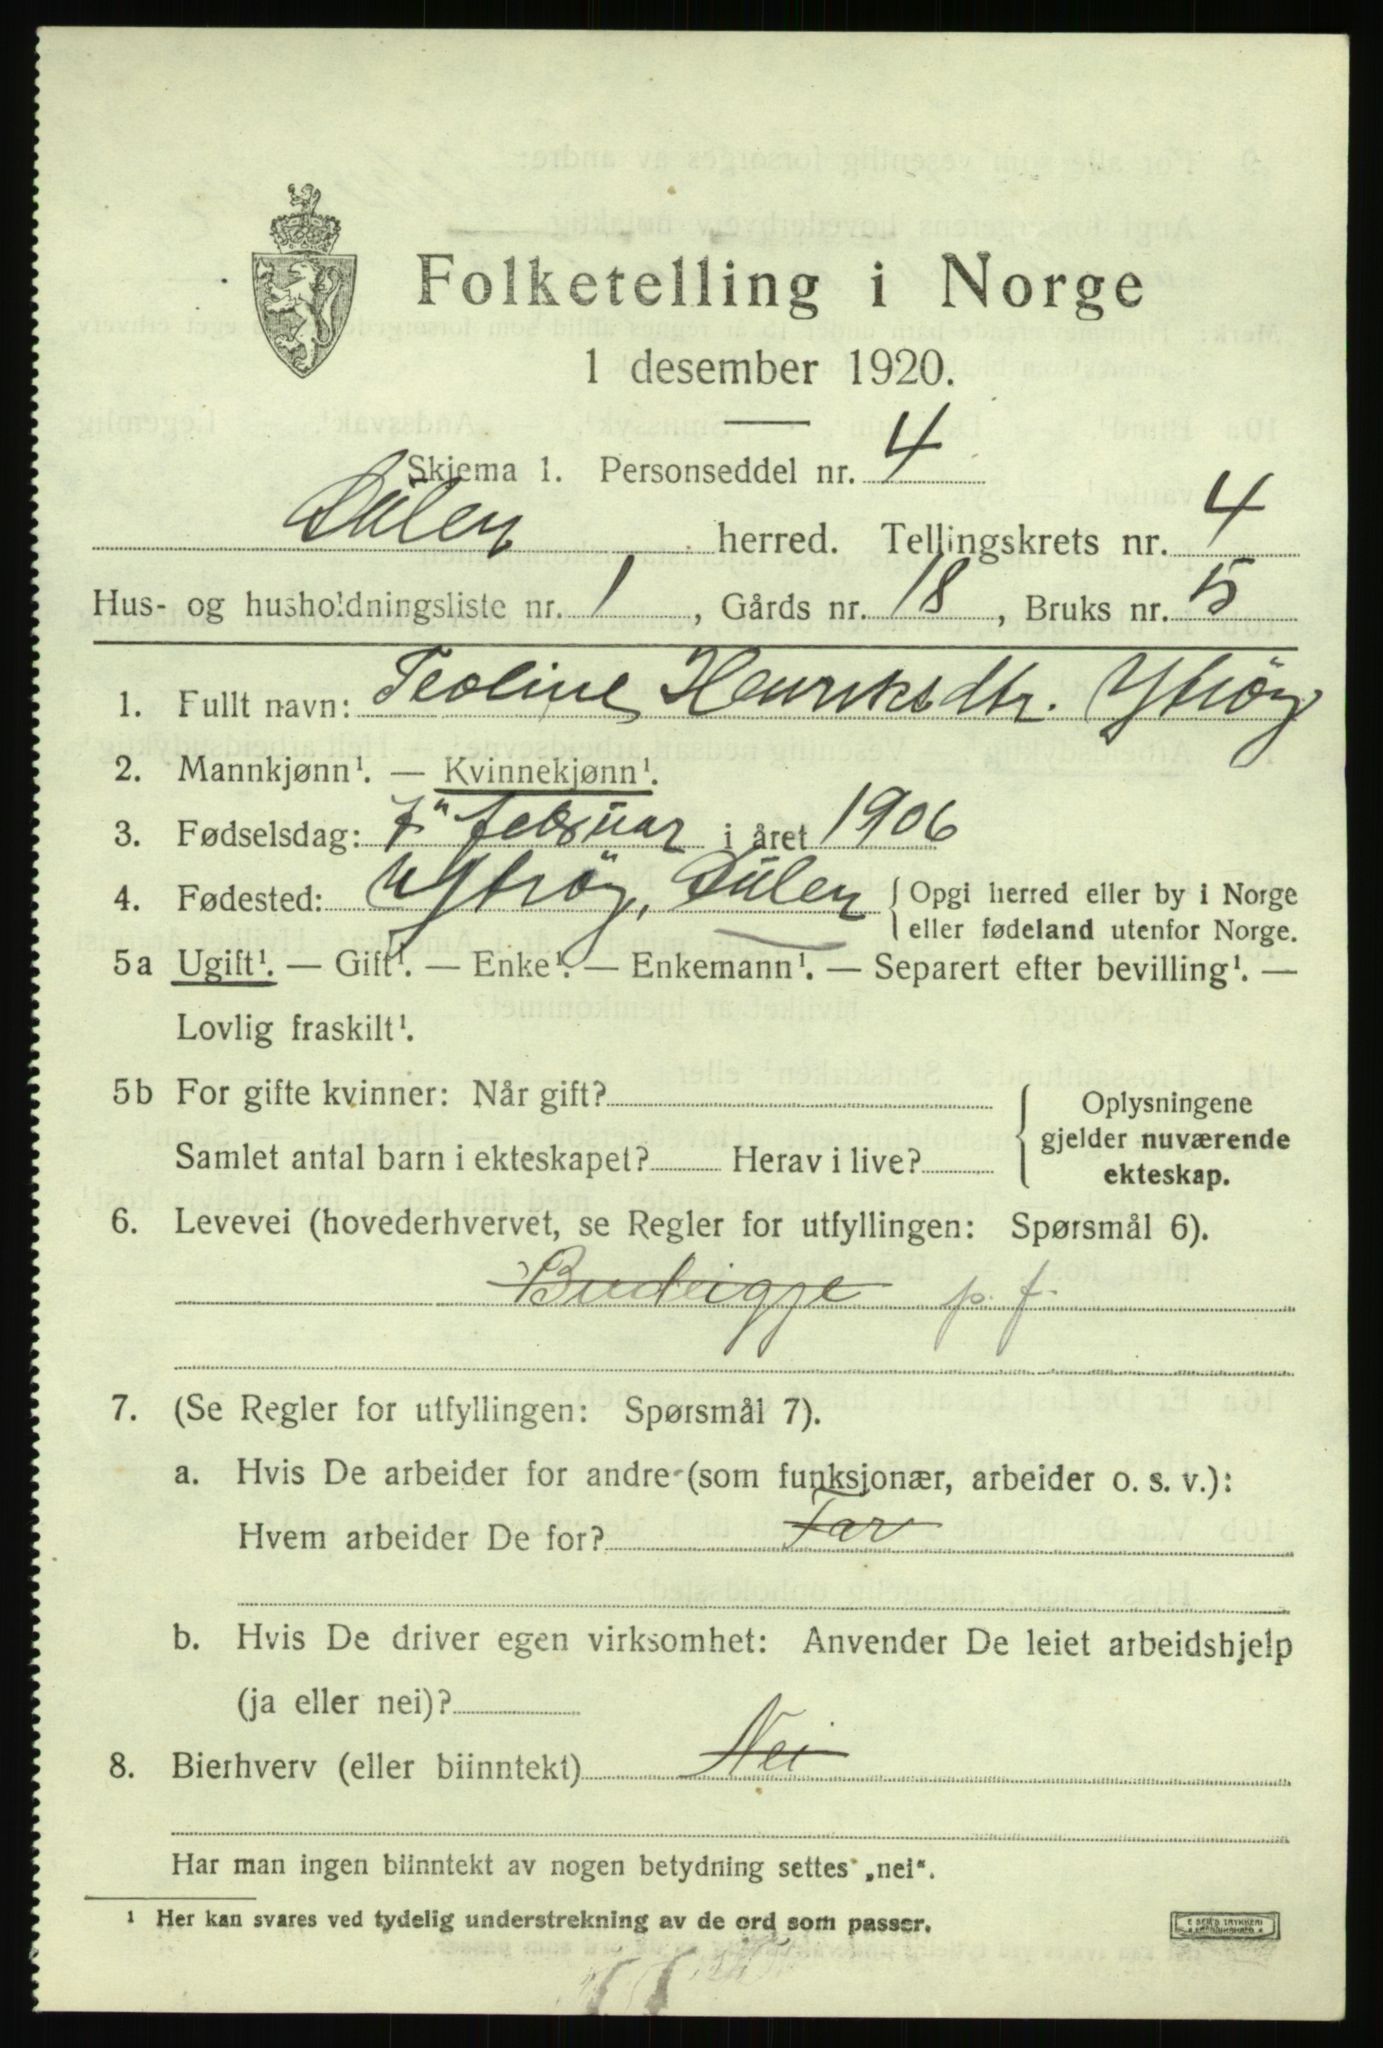 Folketelling i Norge
1 desember 1920.
Skjema 1. Personseddel nr. 4
Sulen herred. Tellingskrets nr. 4
Hus- og husholdningsliste nr. 1, Gårds nr. 18, Bruks nr. 5
1. Fullt navn: Teoline Henriksdtr. Ytrøy
2. Mannkjønn¹. — Kvinnekjønn¹.
3. Fødselsdag: 7" februar i året 1906
4. Fødested: Ytrøy, Sulen { Opgi herred eller by i Norge
eller fødeland utenfor Norge.
5a Ugift¹. — Gift¹. — Enke¹. — Enkemann¹. — Separert efter bevilling¹. —
Lovlig fraskilt¹.
5b For gifte kvinner: Når gift? { Oplysningene
gjelder nuværende
Samlet antal barn i ekteskapet? Herav i live?
ekteskap.
6. Levevei (hovederhvervet, se Regler for utfyllingen: Spørsmål 6).
Budeigge p. f.
7. (Se Regler for utfyllingen: Spørsmål 7).
a. Hvis De arbeider for andre (som funksjonær, arbeider o. s. v.):
Hvem arbeider De for? Far
b. Hvis De driver egen virksomhet: Anvender De leiet arbeidshjelp
(ja eller nei)?
8. Bierhverv (eller biinntekt) Nei
Har man ingen biinntekt av nogen betydning settes „nei“.
¹ Her kan svares ved tydelig understrekning av de ord som passer.